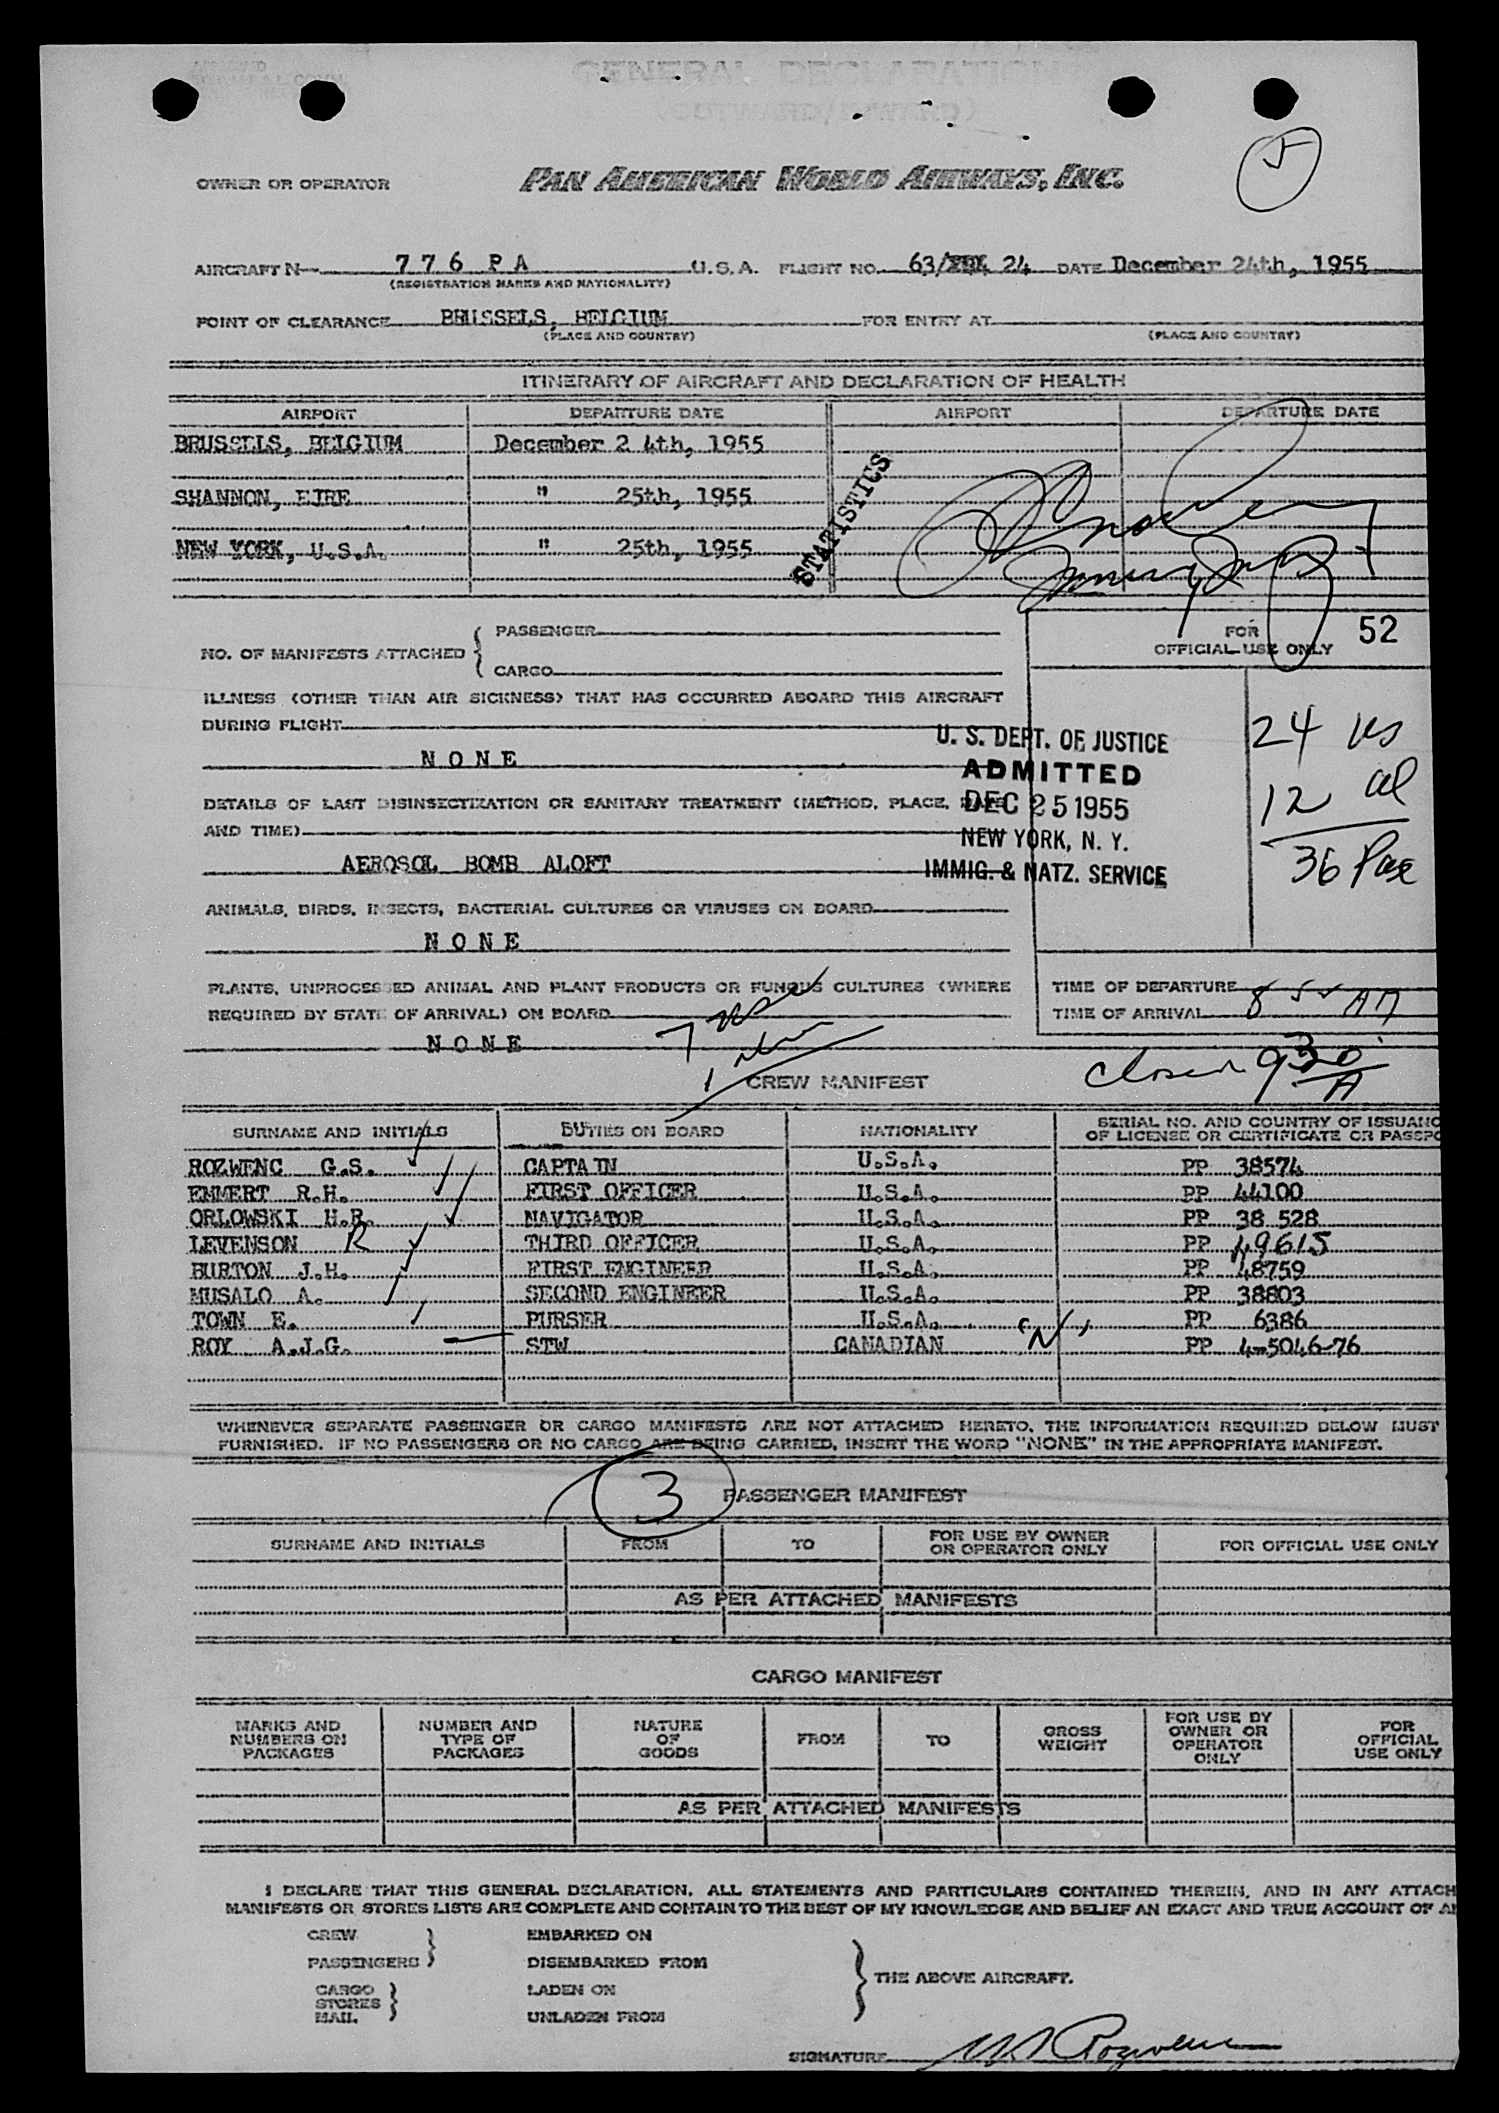 OWNER OR OPERATOR PAN AMERICAN WORLD AIRWAYS, INC. 5
AIRCRAFT N 7 7 6 P A U.S.A. FLIGHT NO. 63/ 24 DATE December 24th, 1955
(REGISTRATION MARKS AND NATIONALITY)
POINT OF CLEARANCE BRUSSELS, BELGIUM FOR ENTRY AT
(PLACE AND COUNTRY) (PLACE AND COUNTRY)
ITINERARY OF AIRCRAFT AND DECLARATION OF HEALTH
AIRPORT DEPARTURE DATE AIRPORT DEPARTURE DATE
BRUSSELS, BELGIUM December 2 4th, 1955
SHANNON, EIRE " 25th, 1955
NEW YORK, U.S.A. " 25th, 1955
STATISTICS
NO. OF MANIFESTS ATTACHED { PASSENGER
CARGO
FOR OFFICIAL USE ONLY 52
ILLNESS (OTHER THAN AIR SICKNESS) THAT HAS OCCURRED ABOARD THIS AIRCRAFT
DURING FLIGHT
N O N E
U. S. DEPT. OF JUSTICE
ADMITTED
DEC 25 1955
NEW YORK, N. Y.
IMMIG. & NATZ. SERVICE
24 us
12 al
36 Pax
DETAILS OF LAST DISINSECTIZATION OR SANITARY TREATMENT (METHOD, PLACE, DATE
AND TIME)
AEROSOL BOMB ALOFT
ANIMALS, BIRDS, INSECTS, BACTERIAL CULTURES OR VIRUSES ON BOARD
N O N E
PLANTS, UNPROCESSED ANIMAL AND PLANT PRODUCTS OR FUNGUS CULTURES (WHERE
REQUIRED BY STATE OF ARRIVAL) ON BOARD
N O N E
TIME OF DEPARTURE
TIME OF ARRIVAL 8 55 AM
7 usc
1
Closed 9 30 A
CREW MANIFEST
SURNAME AND INITIALS DUTIES ON BOARD NATIONALITY SERIAL NO. AND COUNTRY OF ISSUANC
OF LICENSE OR CERTIFICATE OR PASSPO
ROZWENC G.S. CAPTAIN U.S.A. PP 38574
EMMERT R.H. FIRST OFFICER U.S.A. PP 44100
ORLOWSKI H.R. NAVIGATOR U.S.A. PP 38 528
LEVENSON R THIRD OFFICER U.S.A. PP 49615
BURTON J.H. FIRST ENGINEER U.S.A. PP 48759
MUSALO A. SECOND ENGINEER U.S.A. PP 38803
TOWN E. PURSER U.S.A. PP 6386
ROY A.J.G. STW CANADIAN "N" PP 4-5046-76
WHENEVER SEPARATE PASSENGER OR CARGO MANIFESTS ARE NOT ATTACHED HERETO, THE INFORMATION REQUIRED BELOW MUST
FURNISHED. IF NO PASSENGERS OR NO CARGO ARE BEING CARRIED, INSERT THE WORD "NONE" IN THE APPROPRIATE MANIFEST.
3
PASSENGER MANIFEST
SURNAME AND INITIALS FROM TO FOR USE BY OWNER OR OPERATOR ONLY FOR OFFICIAL USE ONLY
AS PER ATTACHED MANIFESTS
CARGO MANIFEST
MARKS AND NUMBERS ON PACKAGES NUMBER AND TYPE OF PACKAGES NATURE OF GOODS FROM TO GROSS WEIGHT FOR USE BY OWNER OR OPERATOR ONLY FOR OFFICIAL USE ONLY
AS PER ATTACHED MANIFESTS
I DECLARE THAT THIS GENERAL DECLARATION, ALL STATEMENTS AND PARTICULARS CONTAINED THEREIN, AND IN ANY ATTACH
MANIFESTS OR STORES LISTS ARE COMPLETE AND CONTAIN TO THE BEST OF MY KNOWLEDGE AND BELIEF AN EXACT AND TRUE ACCOUNT OF A
CREW EMBARKED ON
PASSENGERS DISEMBARKED FROM
THE ABOVE AIRCRAFT.
CARGO LADEN ON
STORES
MAIL UNLADEN FROM
SIGNATURE